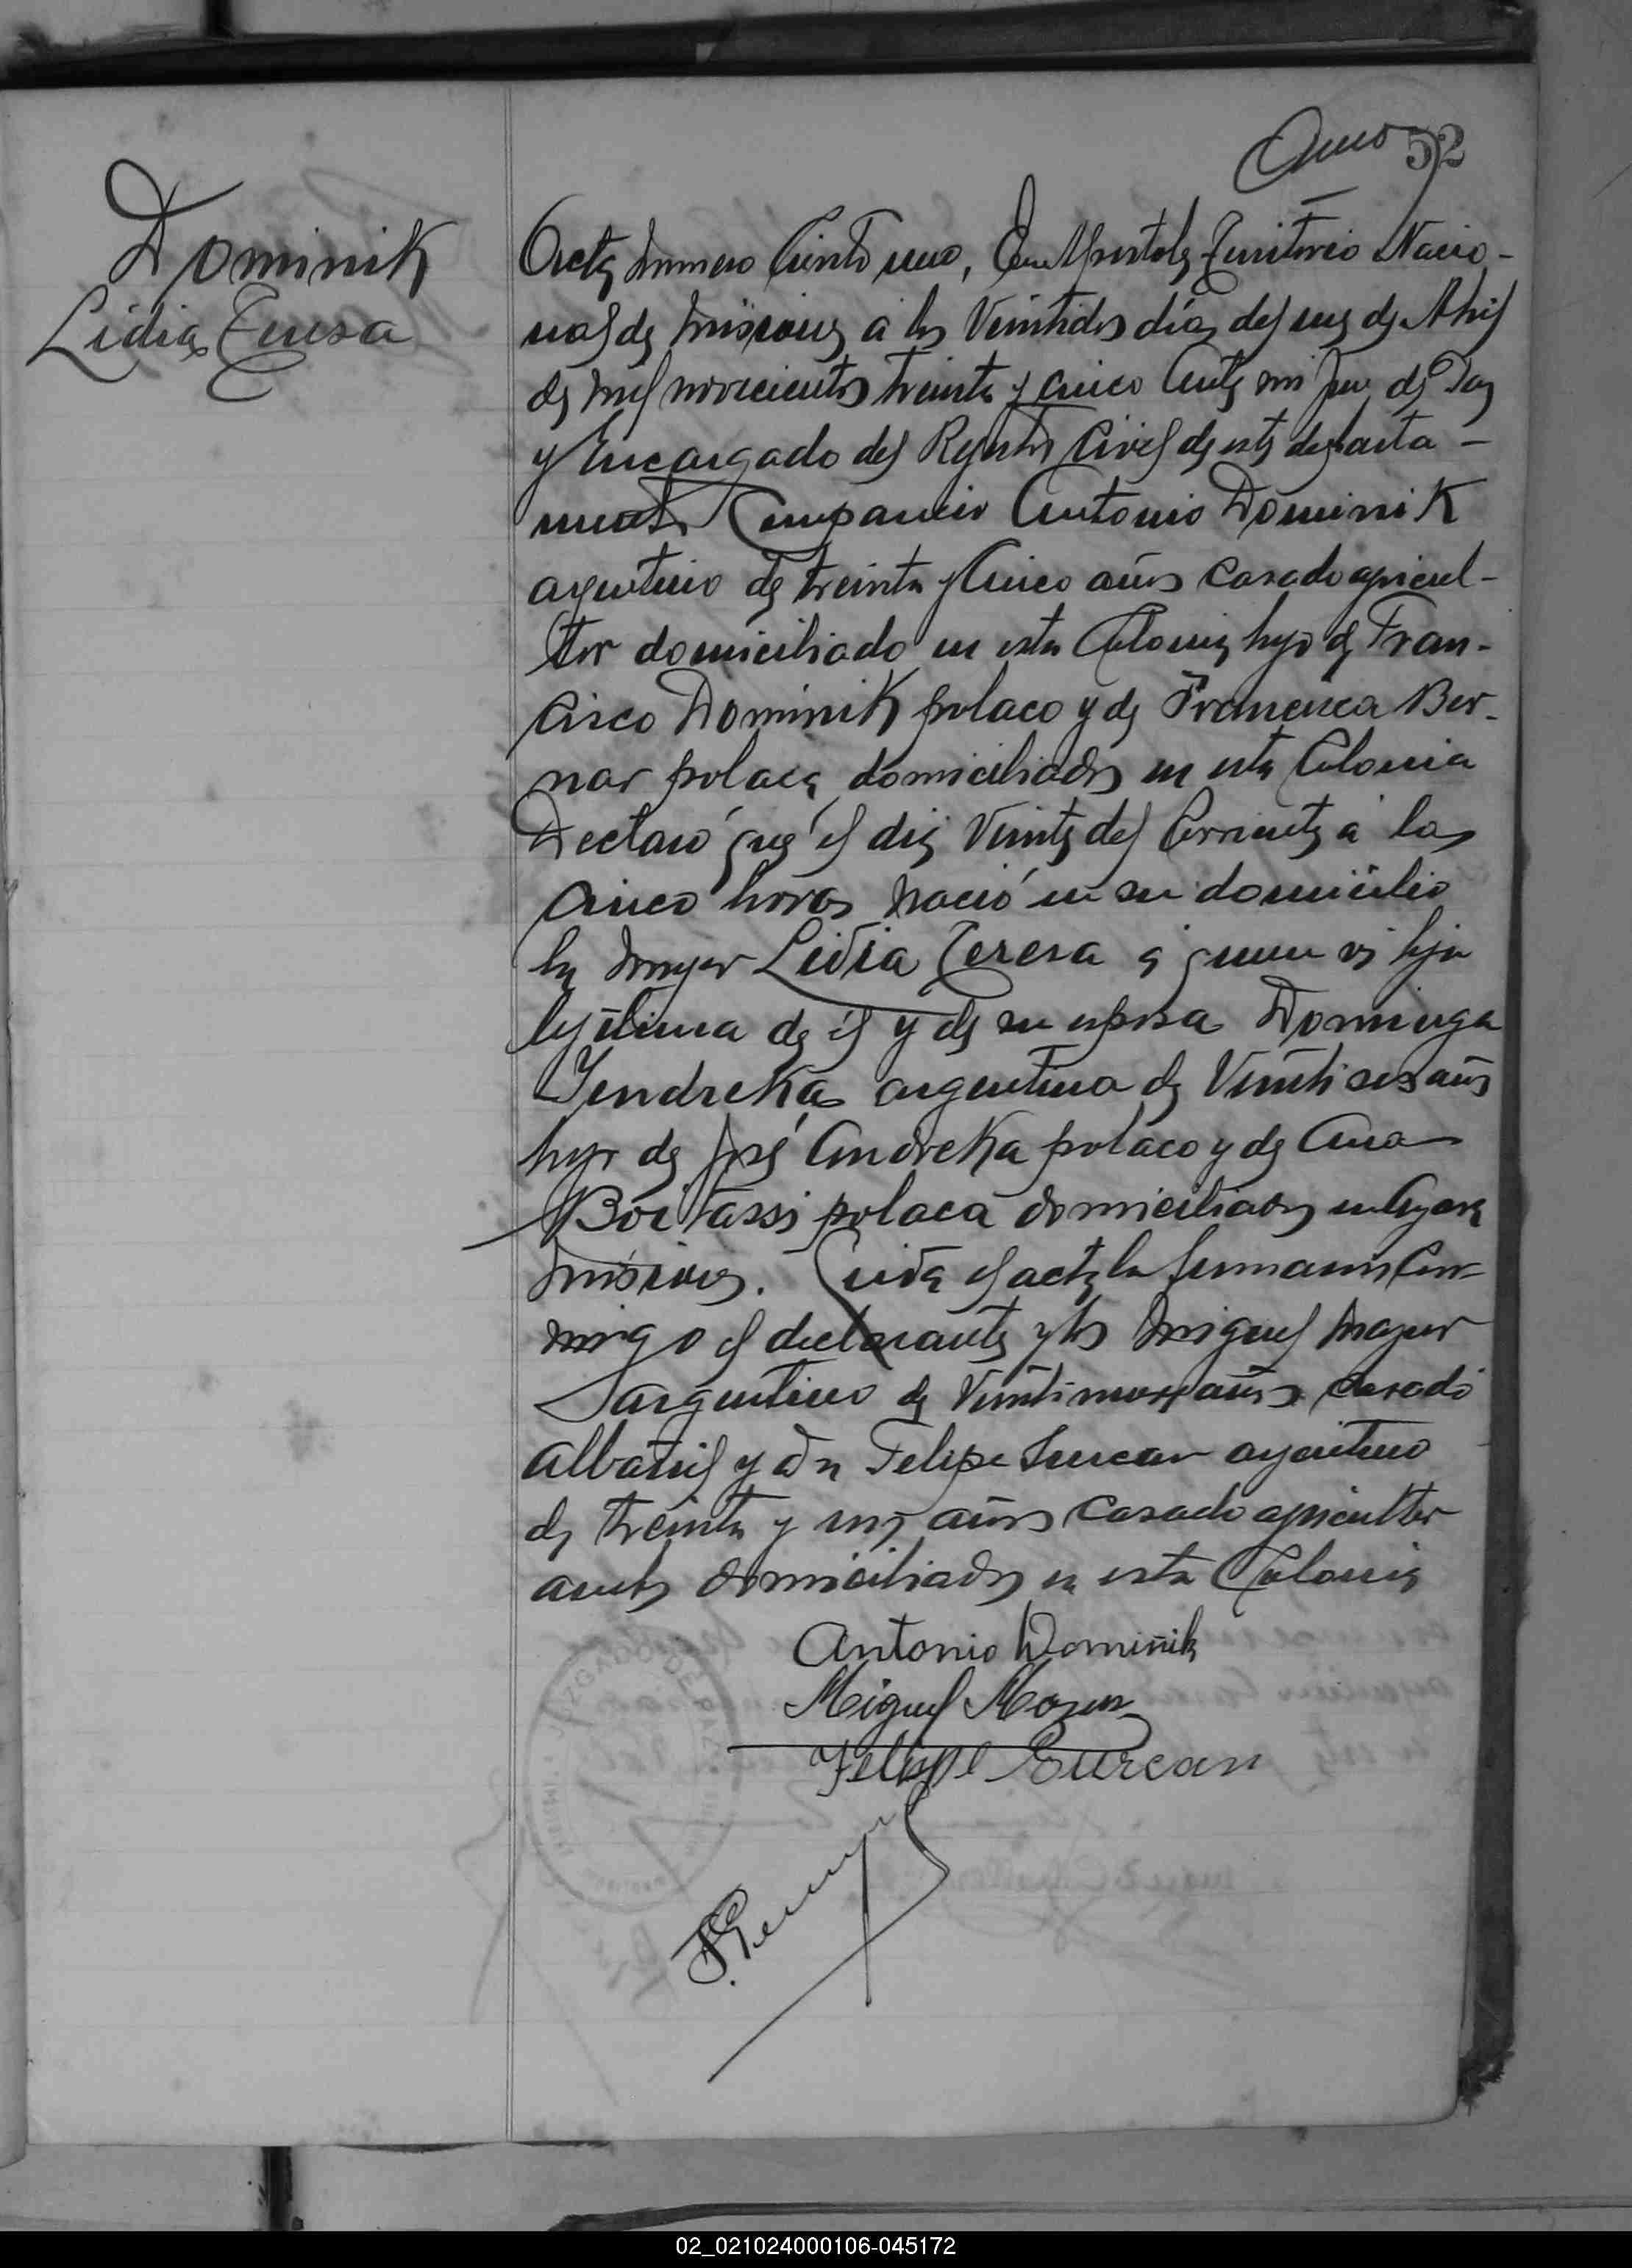 52
Dominik
Lidia Teresa
Acta número Ciento uno, En Apostoles Territorio Nacio-
nal de Misiones a los Veintidos días del mes de Abril
de mil novecientos treinta y cinco Ante mi Juez de Paz
y Encargado del Registro Civil de este departa-
mento Compareció Antonio Dominik
argentino de treinta y cinco años casado agricul-
tor domiciliado en esta Colonia hijo de Fran-
cisco Dominik polaco y de Francisca Ber-
nar polaca domiciliados en esta Colonia
Declaró que el dia Veinte del Corriente a las
cinco horas nació en su domicilio
la mujer Lidia Teresa a quien es hija
legitima de él y de su esposa Dominga
Yendreka argentina de Veintiseis años
hija de José Andreka polaco y de Ana
polaca domiciliados en Azara
Misiones. Leida el acta la firmaron Con-
migo el declarante y tos Miguel Mazur
argentino de Veintinueve años casado
albañil y don Felipe Surcan argentino
de treinta y años casado agricultor
ambos domiciliados en esta Colonia
Antonio Dominik
Miguel Mazur
Felippe Surcan
JUZGADO DE PAZ
02_021024000106-045172